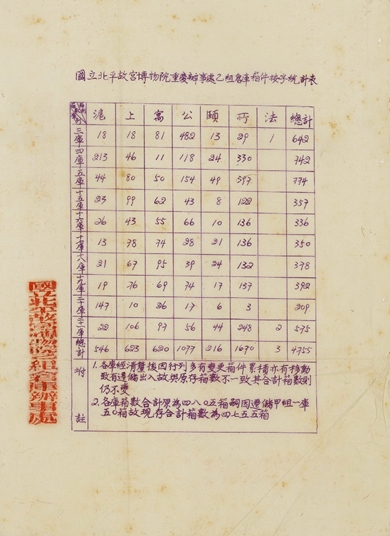 國立北平故宮博物院重慶辦事處乙組各庫箱件按字統計表
滬 上 寓 公 頤 所 法 總計
三庫 18 18 81 482 13 29 1 642
四庫 213 46 11 118 24 330 742
五庫 44 80 50 154 49 397 774
十五庫 23 99 62 43 8 122 357
十六庫 26 43 55 66 10 136 336
十七庫 13 78 74 28 21 136 350
十八庫 21 67 95 39 24 132 378
十九庫 19 76 69 74 17 137 392
二十庫 147 10 26 17 6 3 209
二十一庫 22 106 97 56 44 248 2 575
總計 546 623 620 1077 216 1670 3 4755
附註
1. 各庫經清釐後因行列多有變更箱件累積亦有移動
致有遷儲出入故與原存箱數不一致其合計箱數則
仍不變
2. 各庫箱數合計原為四八〇五箱嗣因遷儲甲組一庫
五〇箱故現存合計箱數為四七五五箱
國立北平故宮博物院乙組倉庫辦事處